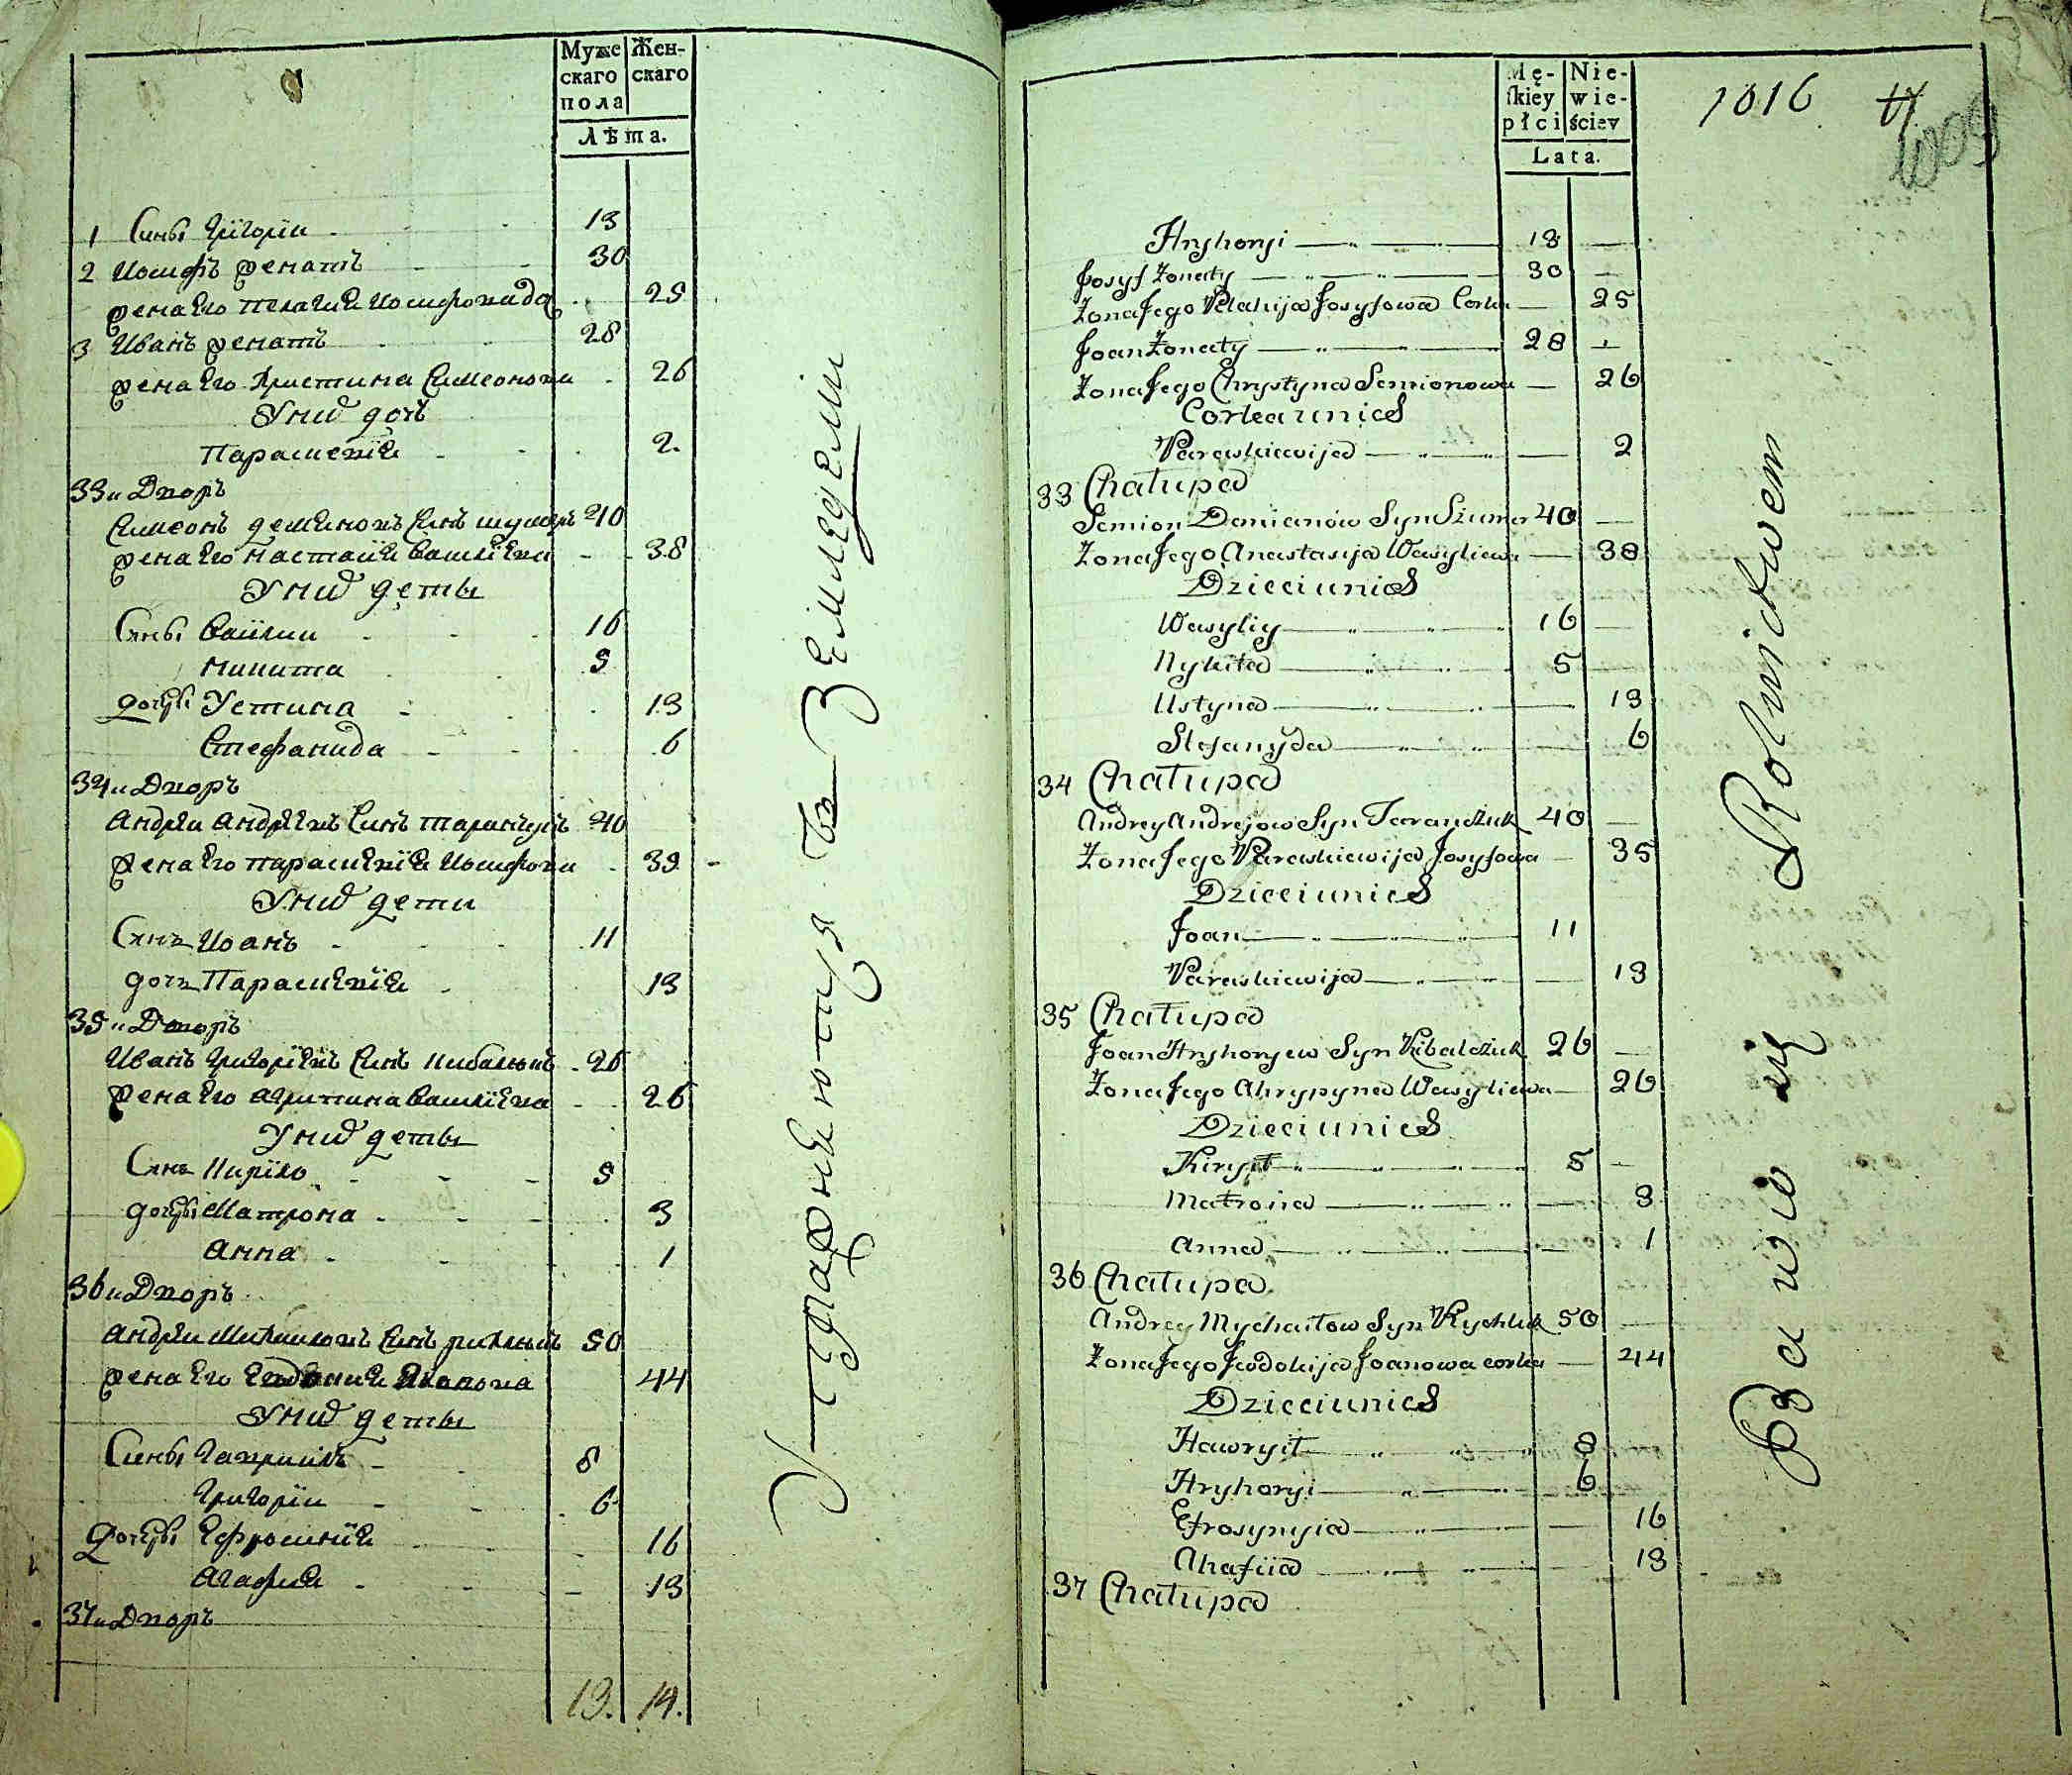 Муже Жен-
скаго скаго
пола
Лѣта.
1 Сины Григории 13
2 Иосифъ женатъ 30
жена Его Пелагия Иосифова до 25
3 Иванъ женатъ 28
жена Его Христина Симеонова 26
У них доч
Параскевия 2.
33 и Дворъ
Симеонъ Деменовъ Синъ шумеръ 40
жена Его Настасия Василиева 38
У них деты
Сины Василий 16
Никита 5
дочеры Устина 13
Стефанида 6
34 и Дворъ
Андрей Андреевъ Синъ таранчукъ 40
жена Его параскевия Иосифова 35
У них дети
Синъ Иоанъ 11
дочь Параскевия 13
35 и Дворъ
Иванъ Григориевъ Синъ Кибалчукъ 26
жена Его Агрипина Василиева 26
У них деты
Синъ Кирило 5
дочеры Матрона 3
Анна 1
36 и Дворъ
Андрей Михайловъ Синъ рихликъ 50
жена Его Евдокия 44
У них деты
Сины Гавриилъ 8
Григории 6
Дочеры Ефросиния 16
Агафия 13
37 и Дворъ
13. 14.
Упражнеются въ Земледелии
Mę- Nie-
ſkiey wie-
płci ściey
Lata.
1016
1009
Hryhoryi 13
Josyf Zonaty 30
Zona Jego Pelahija Josyfowa Corka 25
Joan Zonaty 28
Zona Jego Chrystyna Semionowa 26
Corka u nich
Paraskiewija 2
33 Chałupa
Semion Demianów Syn Szumer 40
Zona Jego Anastasija Wasyliewa 38
Dzieci u nich
Wasyliy 16
Nykita 5
Ustyna 13
Stefanyda 6
34 Chałupa
Andrey Andrejow Syn Taranczuk 40
Zona Jego Paraskiewija Josyfowa 35
Dzieci u nich
Joan 11
Paraskiewija 13
35 Chałupa
Joan Hryhoryew Syn Kibalczuk 26
Zona Jego Ahrypyna Wasyliewa 26
Dzieci u nich
Kirył 5
Matrona 3
Anna 1
36 Chałupa
Andrey Mychaiłow Syn Rychlik 50
Zona Jego Jewdokija Joanowa corka 44
Dzieci u nich
Hawrył 8
Hryhoryi 6
Efrosynyia 16
Ahafiia 13
37 Chałupa
Bawio się Rolnictwem